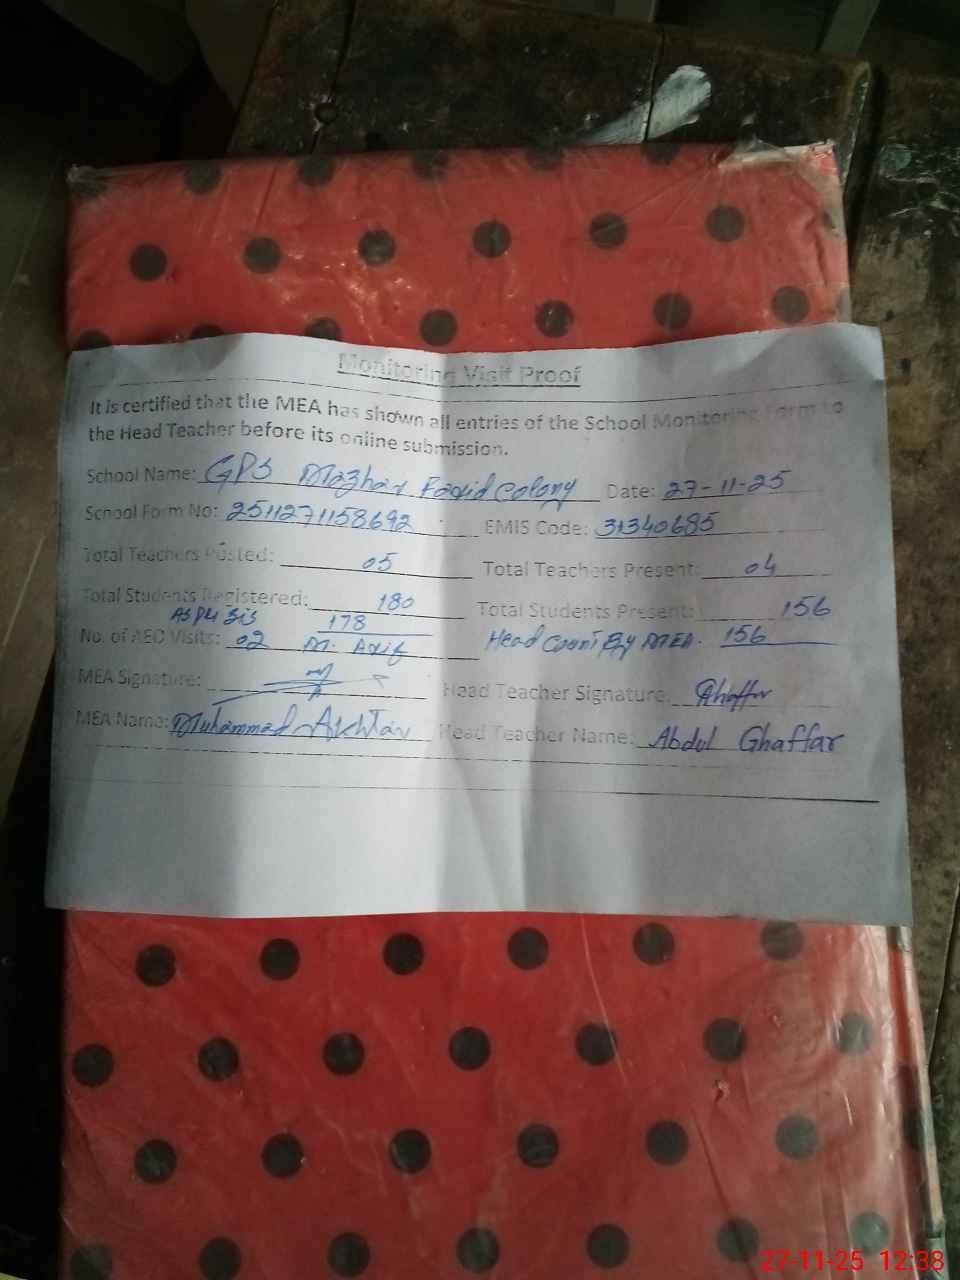 Monitoring Visit Proof
It is certified that the MEA has shown all entries of the School Monitoring Form to
the Head Teacher before its online submission.
School Name: GPS Mazhar Farid Colony Date: 27-11-25
School Form No: 2511271158692 EMIS Code: 31340685
Total Teachers Posted: 05 Total Teachers Present: 04
Total Students Registered: 180 Total Students Present: 156
As Per Sis 178
No. of AEO Visits: 02 M. Asif Head Count By MEA. 156
MEA Signature: Head Teacher Signature: Ghaffar
MEA Name: Muhammad Akhtar Head Teacher Name: Abdul Ghaffar
27-11-25 12:38